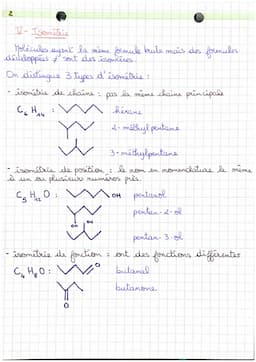 2
IV - Isomérie
Molécules ayant la même formule brute mais des formules
développées ≠ sont des isomères.
On distingue 3 types d'isomérie :
- isomérie de chaîne : pas la même chaîne principale
C₆ H₁₄ : hexane
2-méthylpentane
3-méthylpentane
- isomérie de position : le nom en nomenclature le même
à un ou plusieurs numéros près.
C₅ H₁₂ O : OH pentanol
pentan-2-ol
OH OH
pentan-3-ol
- isomérie de fonction : ont des fonctions différentes
C₄ H₈ O : O butanal
butanone
O